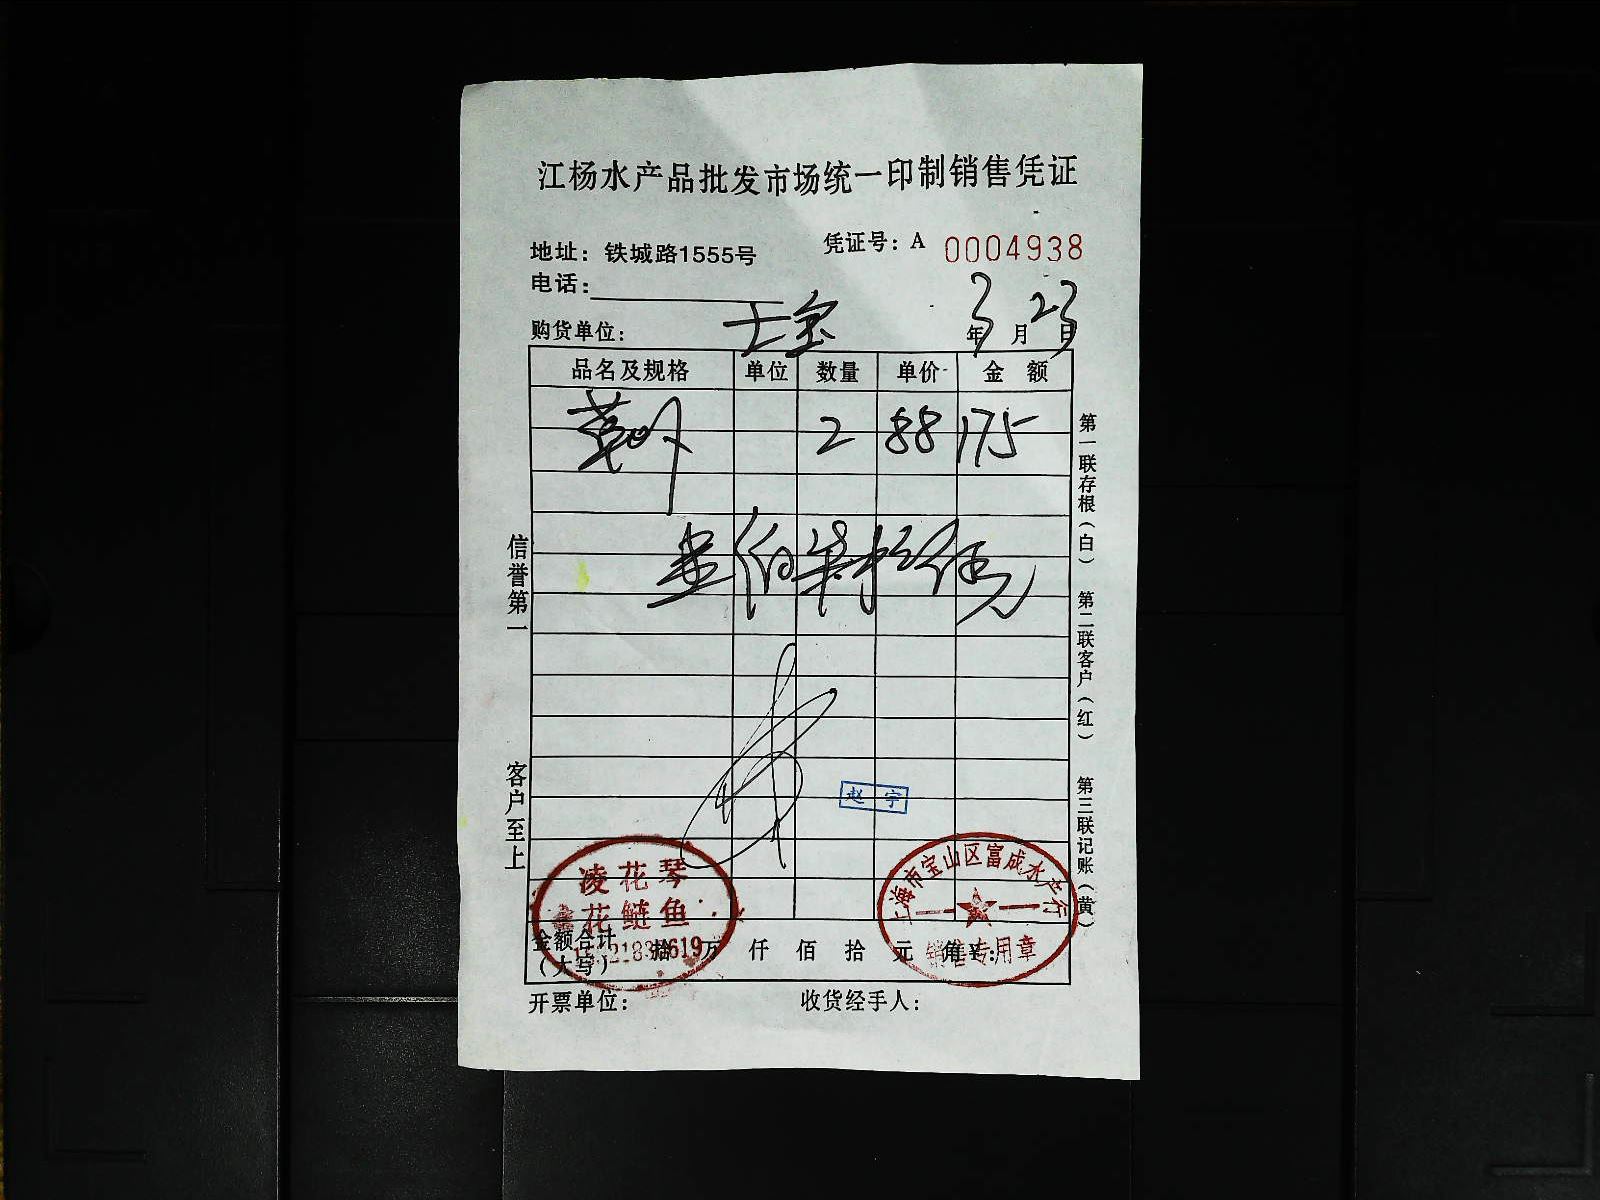 江杨水产品批发市场统一印制销售凭证
凭证号：A 0004938
地址：铁城路1555号
电话：
购货单位：
3 23
年 月 日
品名及规格 单位 数量 单价 金 额
2 88 175
壹佰柒拾伍元
信誉第一
客户至上
第一联存根（白） 第二联客户（红） 第三联记账（黄）
赵 宇
凌花琴
花鲢鱼
上海市宝山区富成水产行
销售专用章
金额合计（大写） 拾 万 仟 佰 拾 元 角
开票单位： 收货经手人：